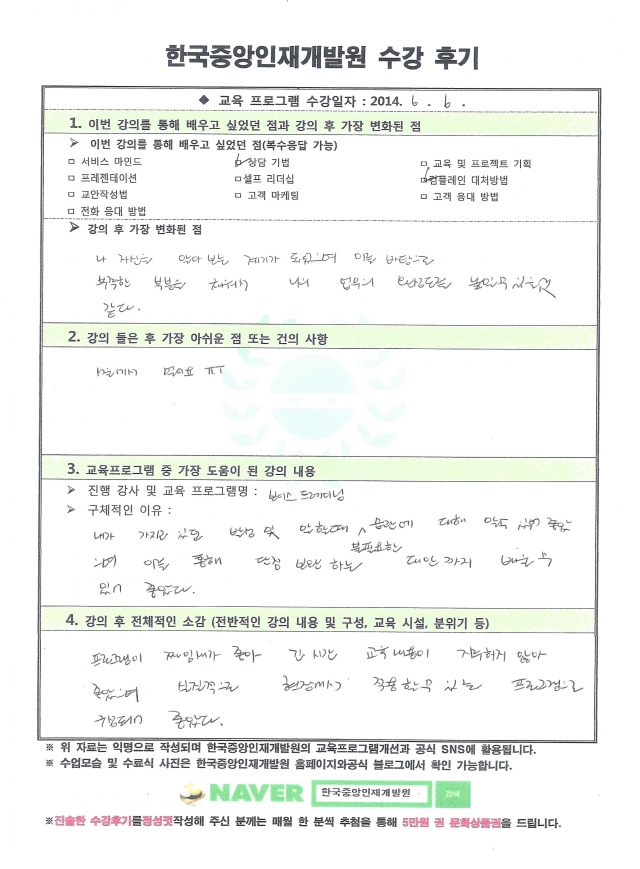 한국중앙인재개발원 수강 후기
◆ 교육 프로그램 수강일자 : 2014. 6. 6.
1. 이번 강의를 통해 배우고 싶었던 점과 강의 후 가장 변화된 점
➤ 이번 강의를 통해 배우고 싶었던 점(복수응답 가능)
□ 서비스 마인드 □ 상담 기법 □ 교육 및 프로젝트 기획
□ 프레젠테이션 □ 셀프 리더십 □ 컴플레인 대처방법
□ 교안작성법 □ 고객 마케팅 □ 고객 응대 방법
□ 전화 응대 방법
➤ 강의 후 가장 변화된 점
나 자신을 알아 보는 계기가 되었으며 이를 바탕으로
부족한 부분을 나의 업무의 완성도를
같다.
2. 강의 들은 후 가장 아쉬운 점 또는 건의 사항
멀어요 ㅠㅠ
3. 교육프로그램 중 가장 도움이 된 강의 내용
➤ 진행 강사 및 교육 프로그램명 : 보이스 트레이닝
➤ 구체적인 이유 :
내가 가지고 있던 발성 및 말할때 습관에 대해 알 수 있어 좋았
불필요한
으며 이를 통해 단점 보완 하는 대안까지 배울 수
있어 좋았다.
4. 강의 후 전체적인 소감 (전반적인 강의 내용 및 구성, 교육 시설, 분위기 등)
프로그램이 짜임새가 좋아 긴 시간 교육내용이 지루하지 않아
좋았으며 실질적으로 현장에서 적용할 수 있는 프로그램으로
구성되어 좋았다.
※ 위 자료는 익명으로 작성되며 한국중앙인재개발원의 교육프로그램개선과 공식 SNS에 활용됩니다.
※ 수업모습 및 수료식 사진은 한국중앙인재개발원 홈페이지와공식 블로그에서 확인 가능합니다.
NAVER 한국중앙인재개발원 검색
※진솔한 수강후기를정성껏작성해 주신 분께는 매월 한 분씩 추첨을 통해 5만원 권 문화상품권을 드립니다.